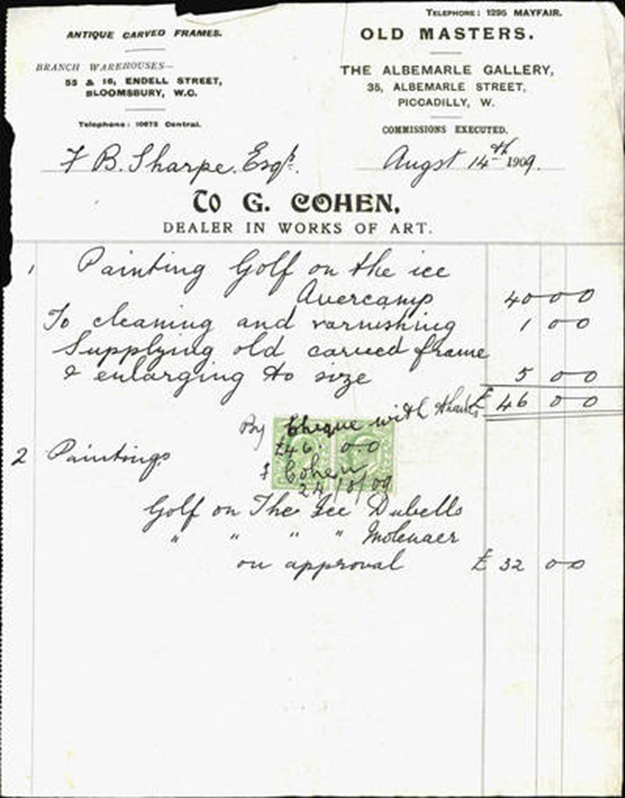 TELEPHONE: 1295 MAYFAIR.
ANTIQUE CARVED FRAMES.
OLD MASTERS.
BRANCH WAREHOUSES—
55 & 16, ENDELL STREET,
BLOOMSBURY, W.C.
THE ALBEMARLE GALLERY,
35, ALBEMARLE STREET,
PICCADILLY, W.
Telephone: 10675 Central.
COMMISSIONS EXECUTED.
F B. Sharpe. Esqr.
Augst 14th 1909.
To G. COHEN,
DEALER IN WORKS OF ART.
1 Painting Golf on the ice
Avercamp 40 0 0
To cleaning and varnishing 1 0 0
Supplying old carved frame
& enlarging to size 5 0 0
£ 46 0 0
By Cheque with thanks
£46. 0 0
2 Paintings
Cohen
24/8/09
Golf on The Ice Dubells
" " " " Molenaer
on approval £ 32 0 0